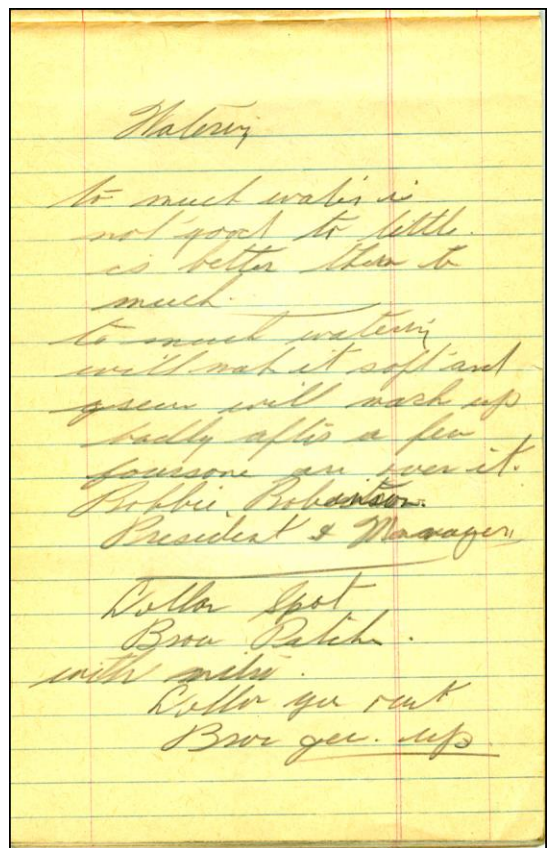 Watering
to much water is
not good to little.
is better then to
much.
to much watering
will mak it soft and
green will mark up
badly after a few
foursome are over it.
Bobbie Robinson.
President & Manager
Dollar Spot
Brow Patch.
with
Dollar
Brow up